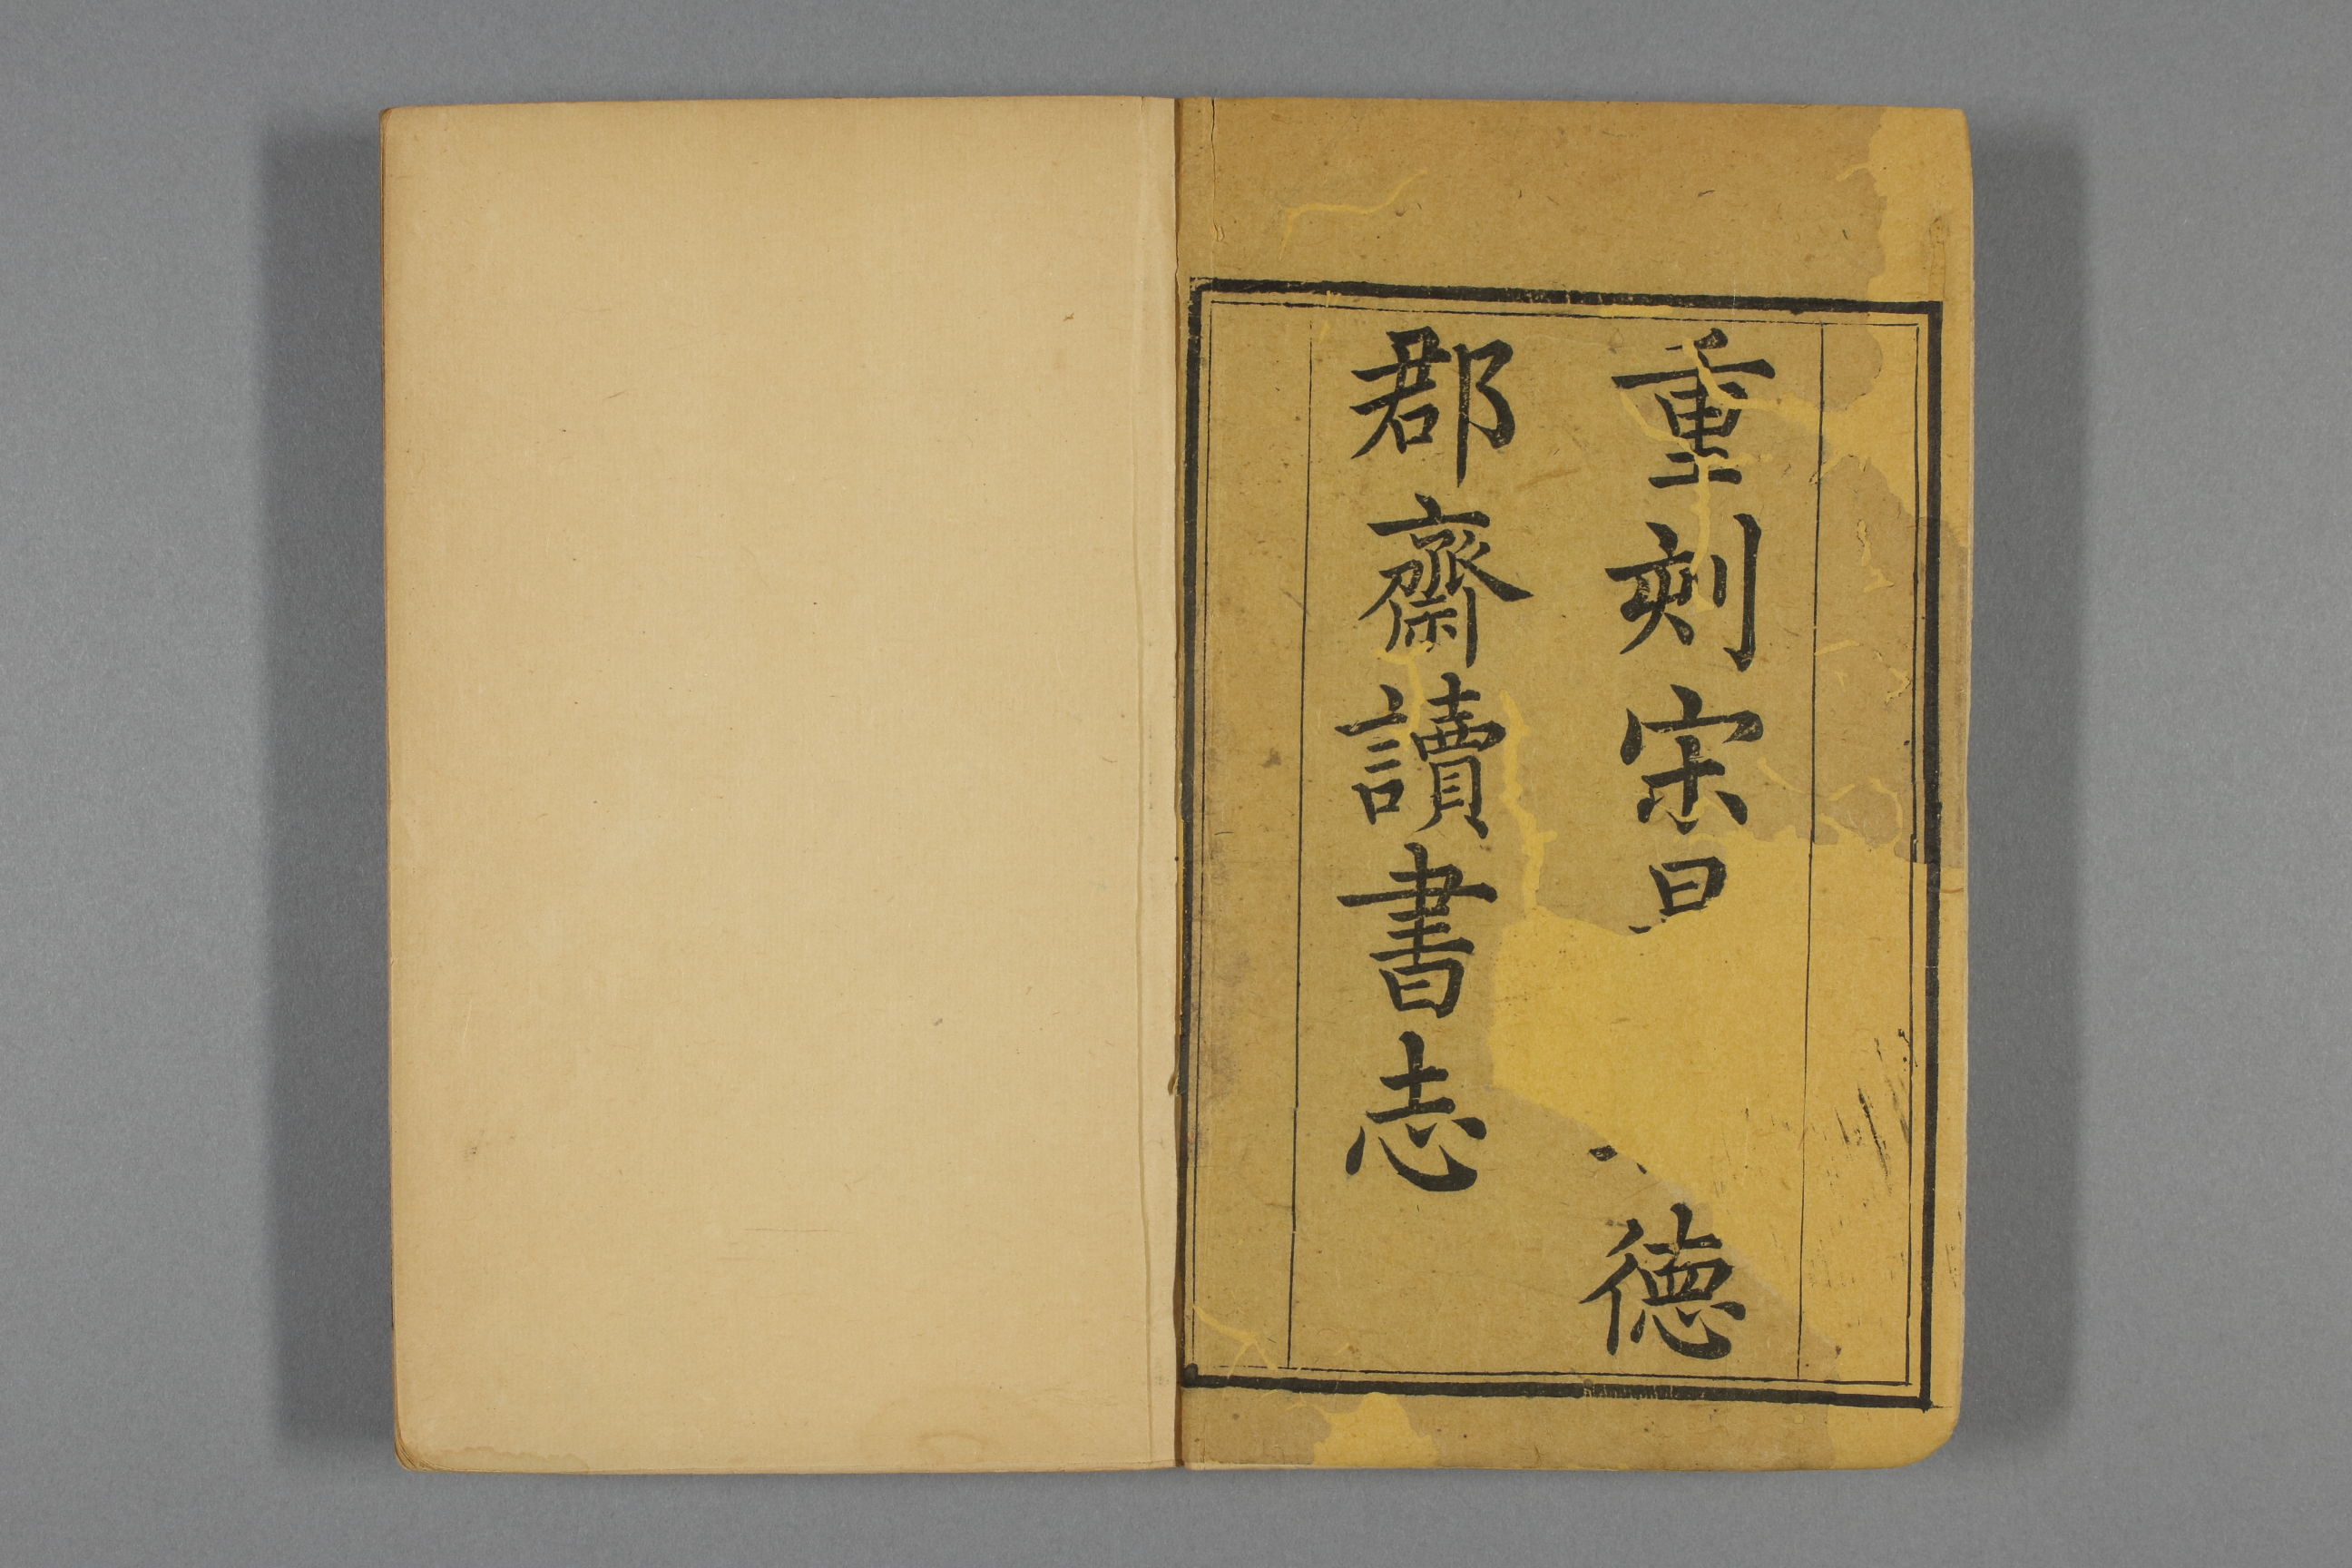 重刻宋徳
郡齋讀書志